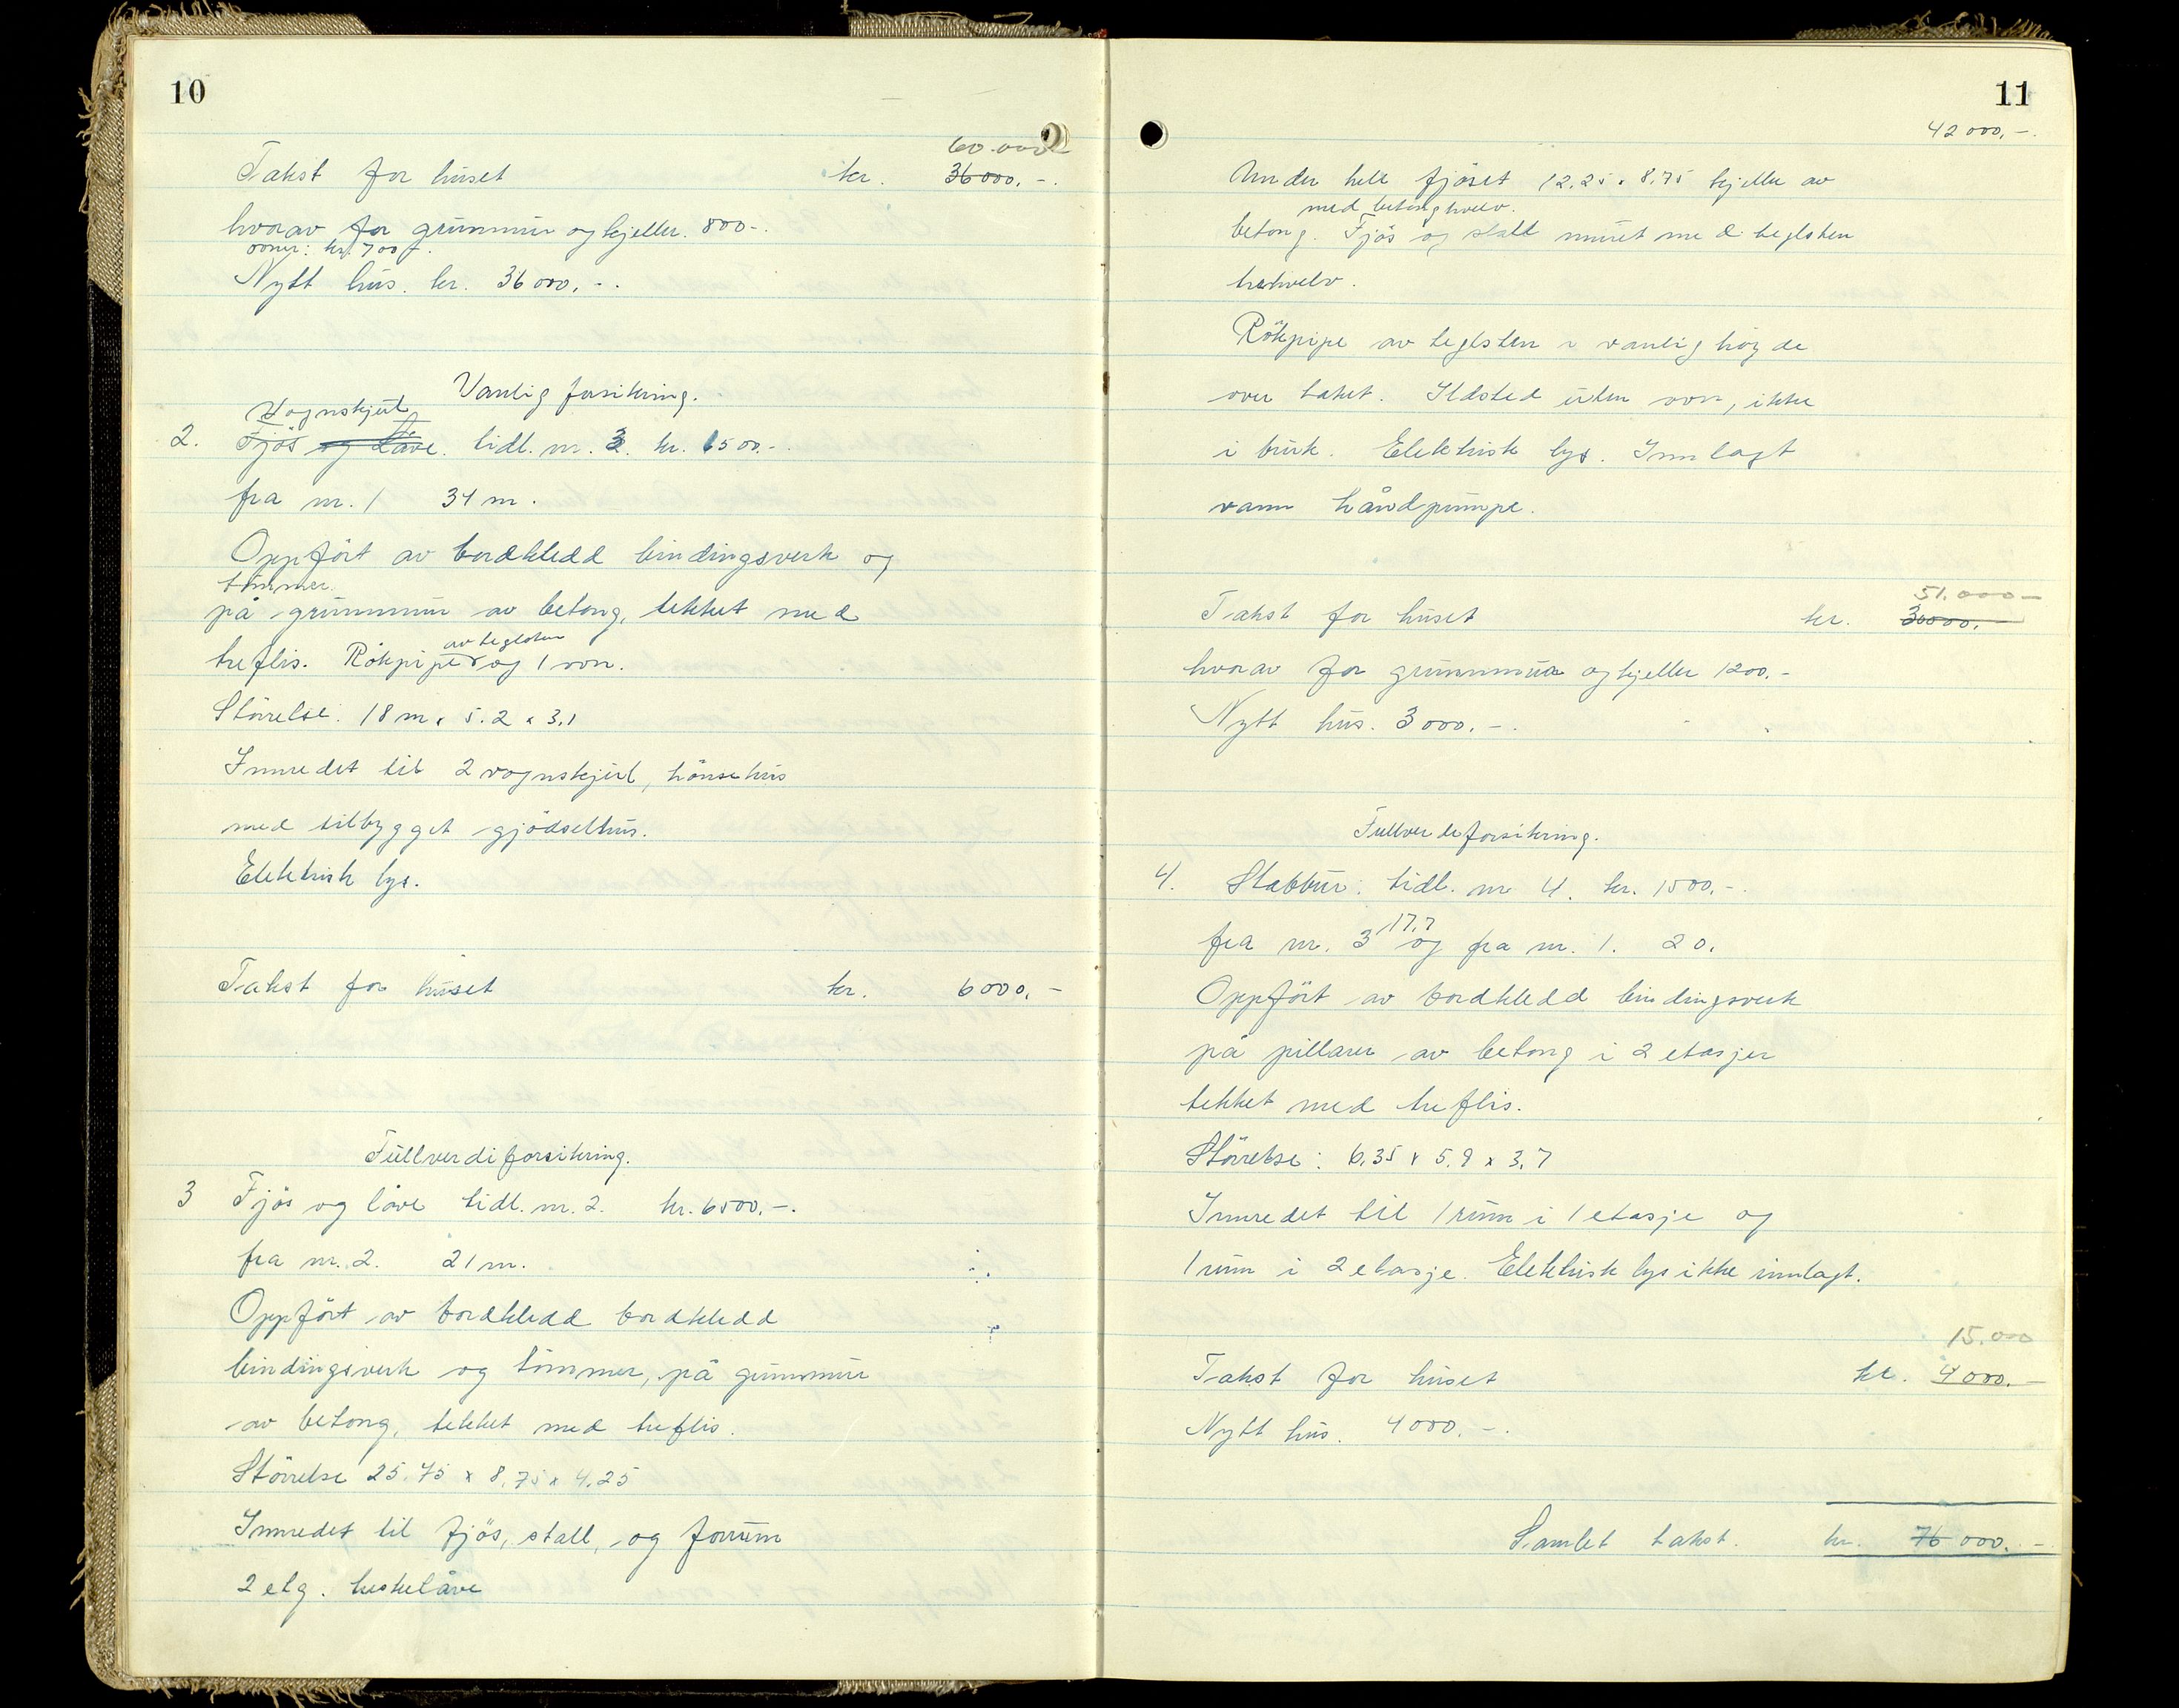 10
60.000
Takst for huset kr. 36000.-.
hvorav for grunnmur og kjeller. 800-.
ovner: kr. 700-.
Nytt hus. kr. 36000.-.
Vanlig forsikring.
Vognskjul
2. Fjös og Låve. tidl. nr. 3. kr. 1500.-.
fra nr. 1 34 m.
Oppfört av bordkledd bindingsverk og
tömmer.
på grunnmur av betong, tekket med
av teglsten
treflis. Rökpipe og 1 ovn.
Störrelse: 18 m x 5.2 x 3,1
Innredet til 2 vognskjul, hönsehus
med tilbygget gjödselhus.
Elektrisk lys.
Takst for huset kr. 6000.-
Fullverdiforsikring.
3 Fjös og låve tidl. nr. 2. kr. 6500.-.
fra nr. 2. 21 m.
Oppfört av bordkledd bordkledd
bindingsverk og tömmer, på grunnmur
av betong, tekket med treflis.
Störrelse 25.75 x 8.75 x 4.25
Innredet til fjös, stall, og forrum
2 etg. treskelåve
11
42000.-.
Under hele fjöset 12.25 x 8.75 kjeller av
med betonghvelv.
betong. Fjös og stall muret med teglsten
Rökpipe av teglsten i vanlig höyde
over taket. Ildsted uten ovn, ikke
i bruk. Elektrisk lys. Innlagt
vann håndpumpe.
51.000-
Takst for huset kr. 30000.
hvorav for grunnmur og kjeller 1200.-
Nytt hus. 3000.-.
Fullverdiforsikring.
4. Stabbur: tidl. nr 4. kr. 1500.-.
17,7
fra nr. 3 og fra nr. 1. 20.
Oppfört av bordkledd bindingsverk
på pillarer av betong i 2 etasjer
tekket med treflis.
Störrelse: 6.35 x 5.9 x 3.7
Innredet til 1 rum i 1 etasje og
1 rum i 2 etasje. Elektrisk lys ikke innlagt.
15.000
Takst for huset kr. 4000.-
Nytt hus. 4000.-.
Samlet takst. kr. 76000.-